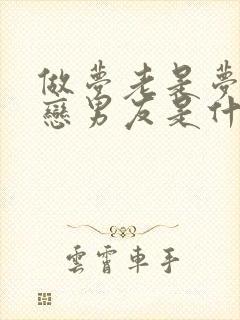 做夢老是夢
戀男友是什
雲霄車手